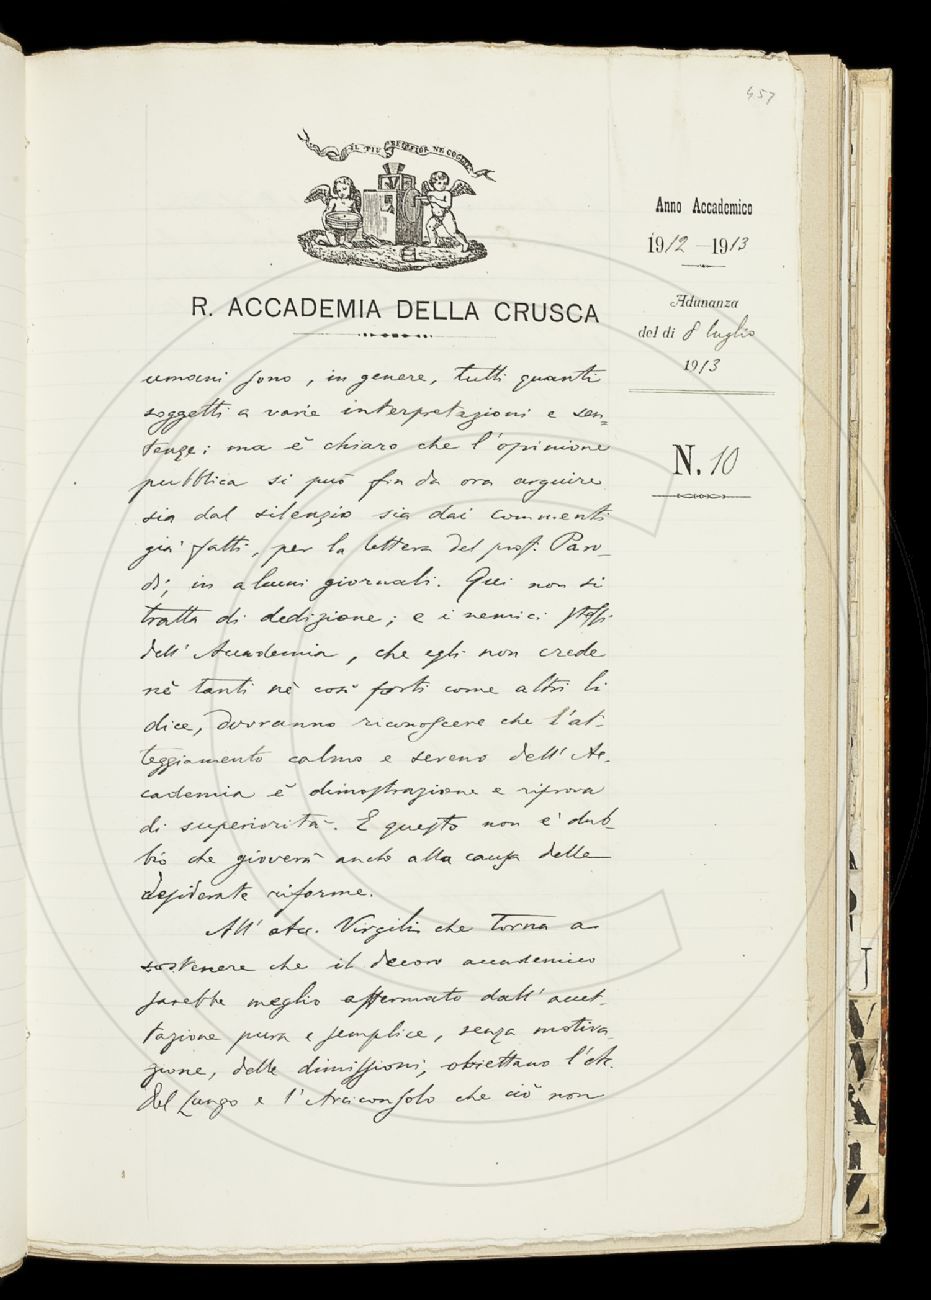 457
IL PIÙ BEL FIOR NE COGLIE
R. ACCADEMIA DELLA CRUSCA
Anno Accademico
1912 - 1913
Adunanza
del dì 8 luglio
1913
N. 10
umani sono, in genere, tutti quanti
soggetti a varie interpretazioni e sen=
tenze: ma è chiaro che l'opinione
pubblica si può fin da ora arguire
sia dal silenzio sia dai commenti
già fatti, per la lettera del prof. Paro-
di, in alcuni giornali. Qui non si
tratta di dedizione; e i nemici stessi
dell'Accademia, che egli non crede
nè tanti nè così forti come altri li
dice, dovranno riconoscere che l'at-
teggiamento calmo e sereno dell'Ac-
cademia è dimostrazione e riprova
di superiorità. E questo non è dub-
bio che gioverà anche alla causa delle
desiderate riforme.
All'Acc. Virgilii che torna a
sostenere che il decoro accademico
sarebbe meglio affermato dall'accet-
tazione pura e semplice, senza motiva
zione, delle dimissioni, obiettano l'Acc.
Del Lungo e l'Arciconsolo che ciò non